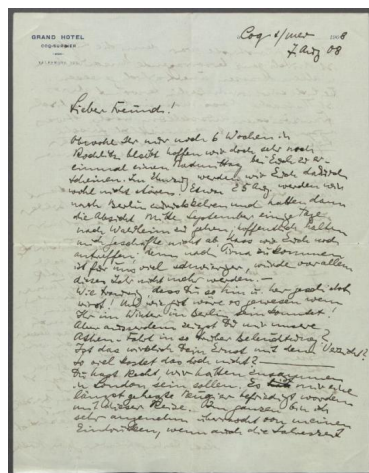 GRAND HOTEL
COQ-SUR-MER
BELGIQUE
Coq s/mer 1908
7 Aug 08
Lieber Freund!
Obwohl Ihr nur noch 6 Wochen in
bleibt hoffen wir doch sehr noch
einmal einen Nachmittag bei Euch zu er-
scheinen. Im Umzug werden wir Euch dadurch
wohl nicht stören. Etwa 25 Aug. werden wir
nach Berlin zurückkehren und hatten dann
die Absicht Mitte September einige Tage
nach zu gehen, hoffentlich halten
mich Geschäfte nicht ab, dass wir Euch noch
antreffen. Denn nach zu kommen
ist für uns viel schwieriger, würde vor allem
dieses Jahr nicht mehr werden –
Wie dass Du so hin u. her
wirst! Und wie gut wäre es gewesen wenn
Ihr im Winter in Berlin sein konntet!
Aber ausserdem zeigst Du mir unsere
Athen-Fahrt in so Beleuchtung?
Ist das wirklich Dein Ernst mit dem Verzicht?
So viel kostet das doch nicht?
Du hast Recht, wir hätten zusammen
in London sein sollen. Es ist mir eine
längst gehegte Neugier befriedigt worden
mit dieser Reise. Im ganzen bin ich
sehr angenehm überrascht von meinen
Eindrücken, wenn auch die Jahreszeit